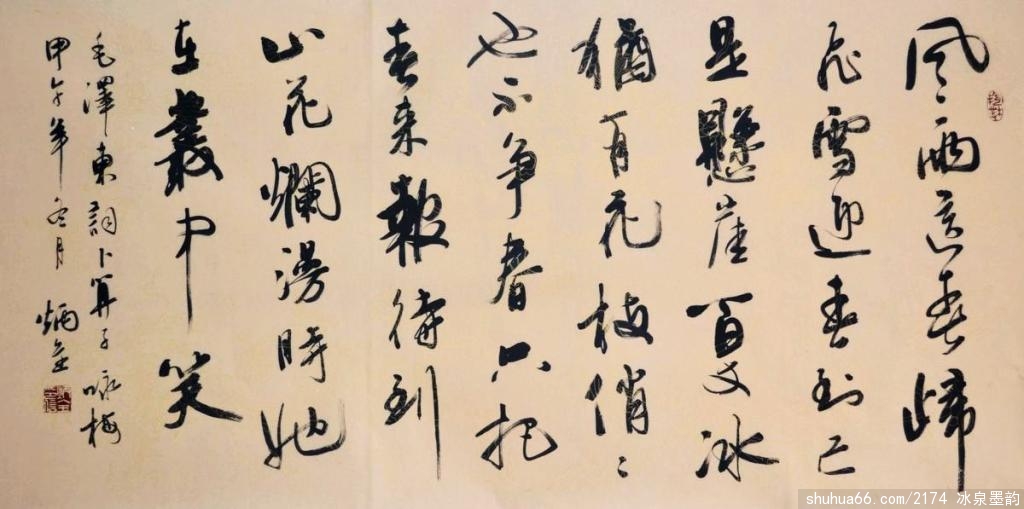 風雨送春歸
飛雪迎春到已
是懸崖百丈冰
猶有花枝俏俏
也不争春只把
春来報待到
山花爛漫時她
在叢中笑
毛澤東詞卜算子咏梅
甲午年冬月 炳全
shuhua66.com/2174 冰泉墨韵